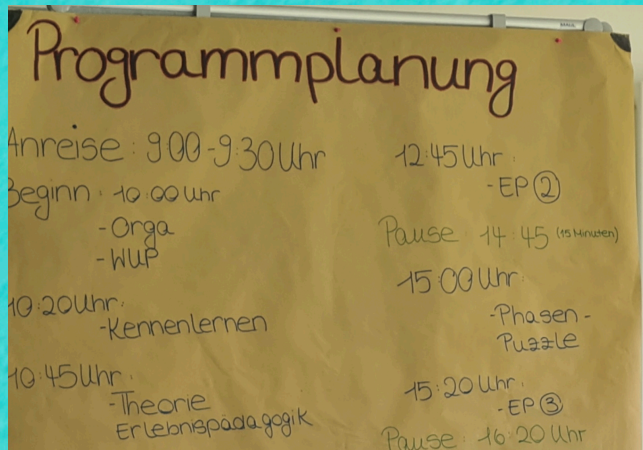 Programmplanung
Anreise: 9:00-9:30 Uhr
Beginn: 10:00 Uhr
-Orga
-WUP
10:20 Uhr:
-Kennenlernen
10:45 Uhr:
-Theorie
Erlebnispädagogik
12:45 Uhr:
-EP ②
Pause: 14:45 (15 Minuten)
15:00 Uhr:
-Phasen-
Puzzle
15:20 Uhr:
-EP ③
Pause: 16:20 Uhr